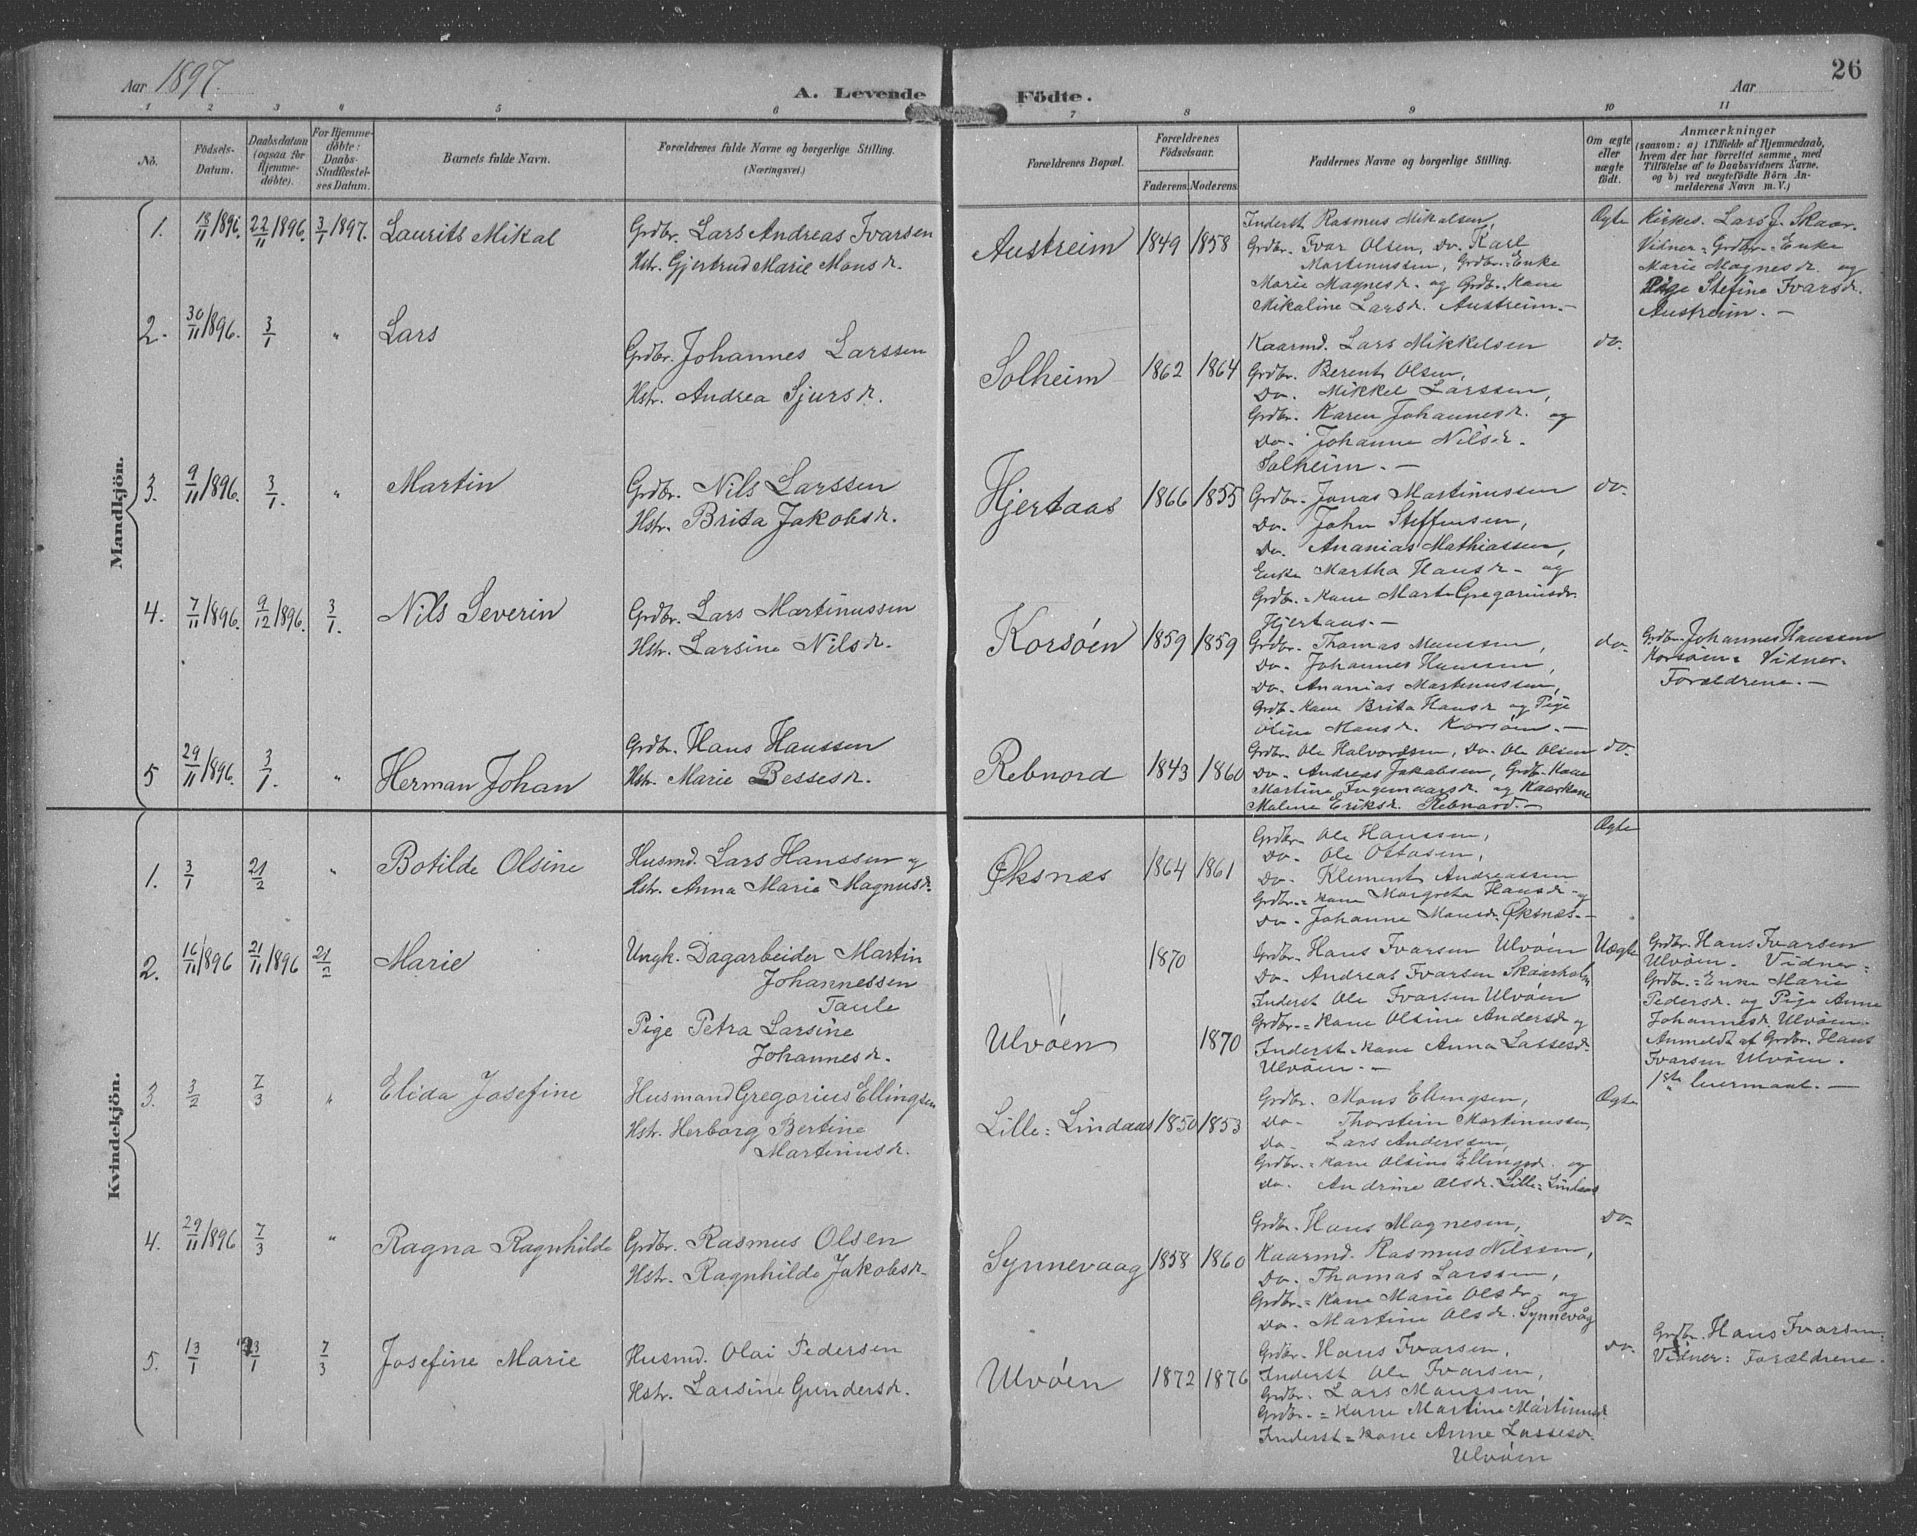 Aar 1897.
A. Levende Födte.
Aar
26
1 2 3 4 5 6 7 8 9 10 11
No.
Födsels-Datum.
Daabsdatum (ogsaa for Hjemme-döbte).
For Hjemme-döbte: Daabs-Stadfæstel-ses Datum.
Barnets fulde Navn.
Forældrenes fulde Navne og borgerlige Stilling.
(Næringsvei.)
Forældrenes Bopæl.
Forældrenes Födselsaar.
Faderens. Moderens.
Faddernes Navne og borgerlige Stilling.
Om ægte eller uægte födt.
Anmærkninger
(saasom: a) i Tilfælde af Hjemmedaab,
hvem der har forrettet samme, med
Tilföielse af to Daabsvidners Navne.
og b) ved uægtefödte Börn An-
melderens Navn m. V.)
Mandkjön.
1. 18/11 1896. 22/11 1896. 3/1 1897. Laurits Mikal
Grdbr. Lars Andreas Ivarsen
Hstr. Gjertrud Marie Monsdr.
Austreim 1849 1858
Inderst Rasmus Mikalsen,
Grdbr. Ivar Olsen, Do. Karl
Martinussen, Grdbr.=Enke
Marie Magnesdr. og Grdbr. Kone
Mikaline Larsdr. Austreim.-
Ægte
Kirkes. Lars J. Skaar.
Vidner = Grdbr.=Enke
Marie Magnesdr. og
Pige Stefine Ivarsdr.
Austreim.-
2. 30/11 1896. 3/1 " Lars
Grdbr. Johannes Larssen
Hstr. Andrea Sjursdr.
Solheim 1862 1864
Kaarmd. Lars Mikkelsen
Grdbr. Berent Olsen,
Do. Mikkel Larssen,
Grdbr. Karen Johannesdr. og
Do. Johanne Nilsdr.
Solheim.-
do.
3. 9/11 1896. 3/1. " Martin
Grdbr. Nils Larssen
Hstr. Brita Jakobsdr.
Hjertaas 1866 1855
Grdbr. Jonas Martinussen
Do. John Steffensen,
Do. Ananias Mathiassen,
Enke Martha Hansdr. og
Grdbr.=kone Marte Gregoriusdr.
Hjertaas.-
do.
4. 7/11 1896. 9/12 1896. 3/1. Nils Severin
Grdbr. Lars Martinussen
Hstr. Larsine Nilsdr.
Korsöen 1859 1859
Grdbr. Thomas Monssen,
Do. Johannes Hanssen,
Do. Ananias Martinussen,
Grdb.-kone Brita Hansdr og Pige
Oline Monsdr. Korsöen.-
do.
Grdbr. Johannes Hanssen
Korsöen. Vidner-
Forældrene.-
5 29/11 1896. 3/1. " Herman Johan
Grdbr. Hans Hanssen
Hstr. Marie Bessesdr.
Rebnord 1843 1860
Grdbr. Ole Halvordsen, Do. Ole Olsen
Do. Andreas Jakobsen, Grdbr. Kone
Martine Ingemaarsdr. og Kaarkone
Malene Eriksdr. Rebnord.-
do.
Kvindekjön.
1. 3/1 21/2 " Botilde Olsine
Husmd. Lars Hanssen og
Hstr. Anna Marie Magnusdr.
Øksnæs 1864 1861
Grdbr. Ole Hanssen,
Do. Ole Ottosen,
Do. Klement Andreassen
Grdbr.=kone Margreta Hansdr. og
Do. Johanne Monsdr. Øksnæs.-
Ægte
2. 16/11 1896 21/11 1896 21/2 Marie
Ungk. Dagarbeider Martin
Johannessen
Taule
Pige Petra Larsine
Johannesdr.
Ulvöen 1870 1870
Grdbr. Hans Ivarsen Ulvöen
Do. Andreas Ivarsen Skaarholm
Inderst Ole Ivarsen Ulvöen
Grdbr.=kone Olsine Andersdr og
Inderst=kone Anna Lassesdr.
Ulvöen.-
Uægte
Grdbr. Hans Ivarsen
Ulvöen. Vidner=
Grdbr.=Enke Marie
Pedersdr. og Pige Anne
Johannesdr. Ulvöen.
Anmeldt af Grdbr. Hans
Ivarsen Ulvöen.
1ste leiermaal.-
3. 3/2 7/3 " Elida Josefine
Husmand Gregorius Ellingsen
Hstr. Herborg Bertine
Martinusdr.
Lille=Lindaas 1850 1853
Grdbr. Mons Ellingsen,
Do. Thorstein Martinussen,
Do. Lars Anderssen,
Grdbr.=kone Olsine Ellingsdr. og
Do. Andrine Olsdr. Lille=Lindaas
Ægte
4. 29/11 1896 7/3 " Ragna Ragnhilde
Grdbr. Rasmus Olsen
Hstr. Ragnhilde Jakobsdr.
Synnevaag 1858 1860
Grdbr. Hans Magnesen,
Kaarmd. Rasmus Nilssen,
Do. Thomas Larssen,
Grdbr.=kone Marie Olsdr. og
Do. Martine Olsdr. Synnevåg
do.
5. 13/1 /1 7/3 Josefine Marie
Husmd. Olai Pedersen
Hstr. Larsine Gundersdr.
Ulvöen 1872 1876
Grdbr. Hans Ivarsen,
Inderst Ole Ivarsen,
Grdbr. Lars Monssen,
Grdbr.=kone Martine Martinusdr
Inderst=kone Anne Lassesdr.
Ulvöen
do.
Grdbr. Hans Ivarsen.
Vidner: Forældrene.